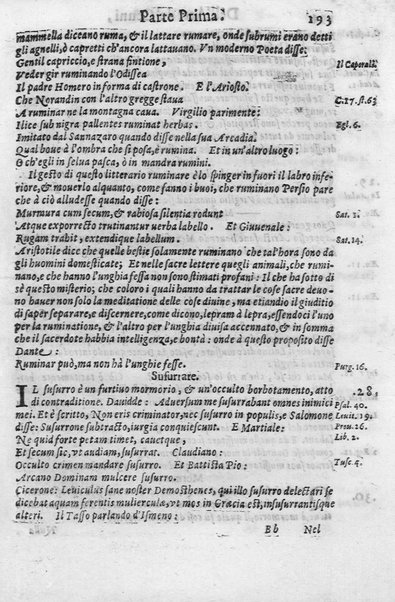 Parte Prima. 193
mammella diceano ruma, & il lattare rumare, onde subrumi erano detti
gli agnelli, ò capretti ch'ancora lattauano. Vn moderno Poeta disse:
Gentil capriccio, e strana fintione, Il Caporali.
Veder gir ruminando l'Odissea
Il padre Homero in forma di castrone. E l'Ariosto.
Che Norandin con l'altro gregge staua C.17. st.63
A ruminar ne la montagna caua. Virgilio parimente:
Ilice sub nigra pallentes ruminat herbas. Egl. 6.
Imitato dal Sannazaro quando disse nella sua Arcadia.
Qual boue à l'ombra che si posa, e rumina. Et in vn'altro luogo:
O ch'egli in selua pasca, ò in mandra rumini.
Il gesto di questo litterario ruminare è lo spinger in fuori il labro infe-
riore, & mouerlo alquanto, come fanno i buoi, che ruminano Persio pare
che à ciò alludesse quando disse:
Murmura cum secum, & rabiosa silentia rodunt Sat. 2.
Atque exporrecto trutinantur verba labello. Et Giuuenale:
Rugam trahit, extendique labellum. Sat. 14.
Aristotile dice che quelle bestie solamente ruminano che tal'hora sono da
gli huomini domesticate; Et nelle sacre lettere quegli animali, che rumi-
nano, e che hanno l'unghia fessa non sono stimati profani: Il che ha sotto di
sè questo misterio; che coloro i quali hanno da trattar le cose sacre deuo-
no hauer non solo la meditatione delle cose diuine, ma etiandio il giuditio
di saper separare, e discernere, come dicono, lepram à lepra, essendoci l'uno
per la ruminatione, & l'altro per l'unghia diuisa accennato, & in somma
che il sacerdote habbia intelligenza, e bontà: onde à questo proposito disse
Dante:
Ruminar può, ma non hà l'unghie fesse. Purg. 16.
Susurrare.
IL susurro è un furtiuo mormorio, & un'occulto borbotamento, atto .28.
di contraditione. Dauidde: Aduersum me susurrabant omnes inimici Psal. 40.
mei. Et è scritto, Non eris criminator, nec susurro in populis, e Salomone Leuit. 19.
disse: Susurrone subtracto, iurgia conquiescunt. E Martiale: Prou. 26.
Ne quid forte petam timet, cauetque, Lib. 2.
Et secum sic, vt audiam, susurrat. Claudiano:
Occulto crimen mandare susurro. Et Battista Pio:
Arcano Dominam mulcere susurro.
Cicerone: Leuiculus sane noster Demosthenes, qui illo susurro delectari se Tusc. 4.
dicebat aquam ferentis mulierculæ, vt mos in Græcia est, insusurrantisque
alteri. Il Tasso parlando d'Ismeno:
Bb Nel